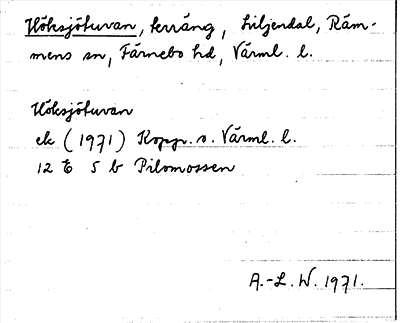 Höksjötuvan, terräng, Liljendal, Räm-
mens sn, Färnebo hd, Värml. l.
Höksjötuvan
ek (1971) Kopp. o. Värml. l.
12 E 5 b Pilomossen
A.-L. W. 1971.